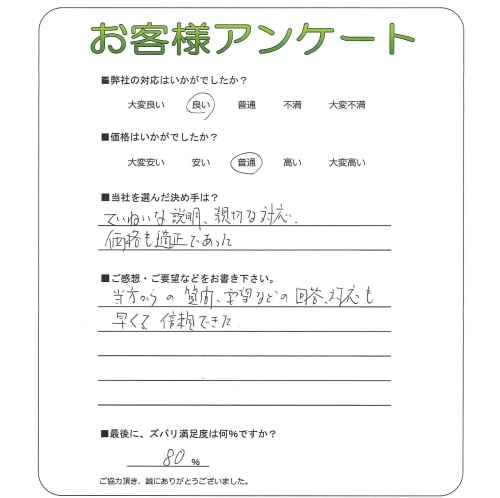 お客様アンケート
■弊社の対応はいかがでしたか？
大変良い 良い 普通 不満 大変不満
■価格はいかがでしたか？
大変安い 安い 普通 高い 大変高い
■当社を選んだ決め手は？
ていねいな説明、親切な対応、
価格も適正であった
■ご感想・ご要望などをお書き下さい。
当方からの質問、要望などの回答、対応も
早くて信頼できた
■最後に、ズバリ満足度は何%ですか？
80 %
ご協力頂き、誠にありがとうございました。